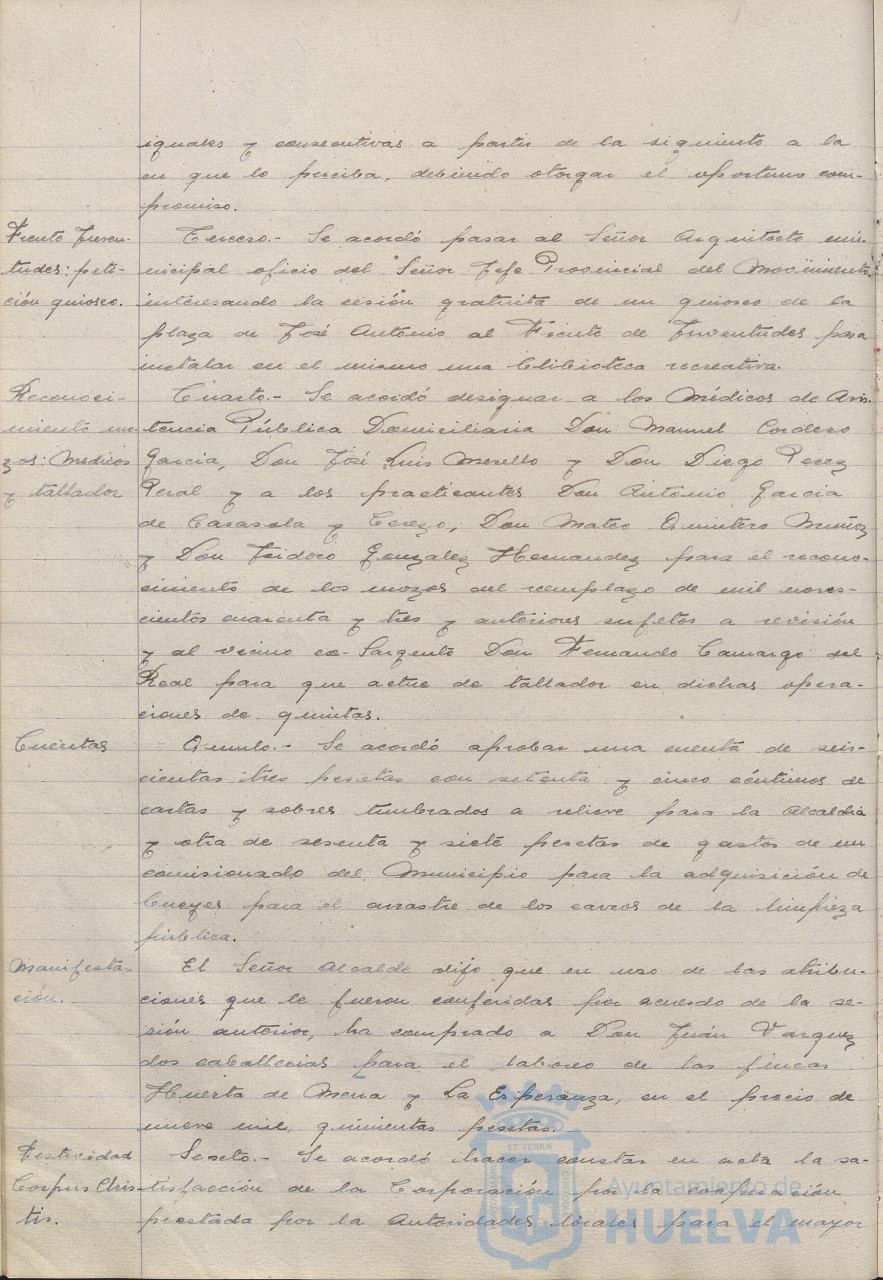 iguales y consecutivas a partir de la siguiente a la
en que lo perciba, debiendo otorgar el oportuno com-
promiso.
Frente Juven-
tudes: peti-
ción quiosco.
Tercero.- Se acordó pasar al Señor Arquitecto mu-
nicipal oficio del Señor Jefe Provincial del Movimiento
interesando la cesión gratuita de un quiosco de la
plaza de José Antonio al Frente de Juventudes para
instalar en el mismo una biblioteca recreativa.
Reconoci-
miento mo-
zos: Medicos
y tallador
Cuarto.- Se acordó designar a los Médicos de Asis-
tencia Pública Domiciliaria Don Manuel Cordero
Garcia, Don José Luis Morello y Don Diego Perez
Peral y a los practicantes Don Antonio Garcia
de Casasola y Cerezo, Don Mateo Quintero Muñoz
y Don Isidoro Gonzalez Hernandez para el recono-
cimiento de los mozos del remplazo de mil noves-
cientos cuarenta y tres y anteriores sujetos a revisión
y al vecino ex-Sargento Don Fernando Camargo del
Real para que actue de tallador en dichas opera-
ciones de quintas.
Cuentas
Quinto.- Se acordó aprobar una cuenta de seis-
cientas tres pesetas con setenta y cinco céntimos de
cartas y sobres timbrados a relieve para la Alcaldia
y otra de sesenta y siete pesetas de gastos de un
comisionado del Municipio para la adquisición de
bueyes para el arrastre de los carros de la limpieza
pública.
Manifesta-
ción.
El Señor Alcalde dijo que en uso de las atribu-
ciones que le fueron conferidas por acuerdo de la se-
sión anterior, ha comprado a Don Juán Vazquez
dos caballerias para el laboreo de las fincas
Huerta de Mena y La Esperanza, en el precio de
nueve mil quinientas pesetas.
Festividad
Corpus Chris-
tis.
Sexto.- Se acordó hacer constar en acta la sa-
tisfacción de la Corporación por la cooperación
prestada por la Autoridades locales para el mayor
ET TERRAE
Ayuntamiento de
HUELVA